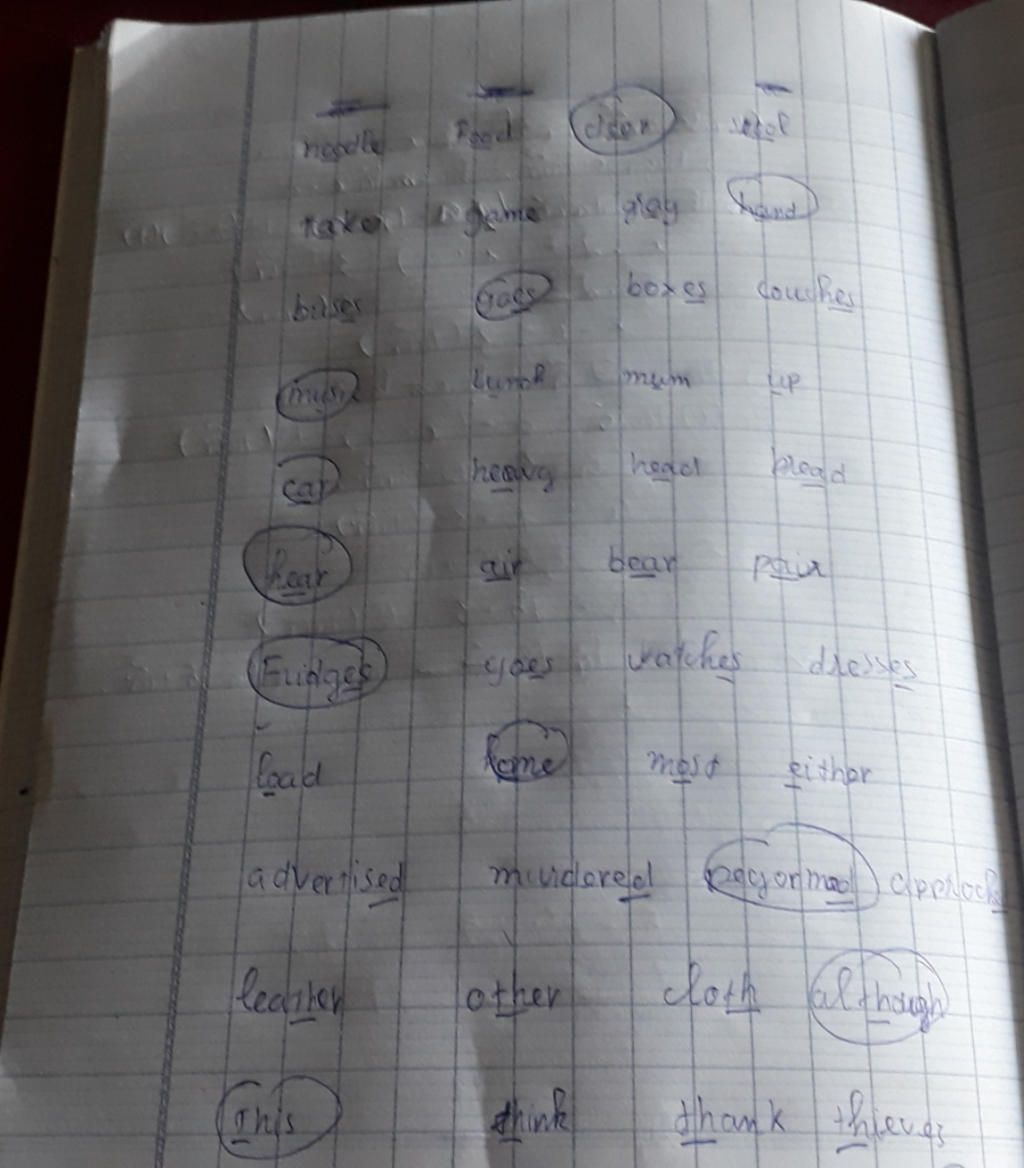 needle food door
take game gray hand
buses Goes boxes couches
music Lunch mum up
car heavy head bread
hear air bear pair
Fridges goes watches dresses
load some most either
advertised murdered
leather other cloth although
This think thank thieves